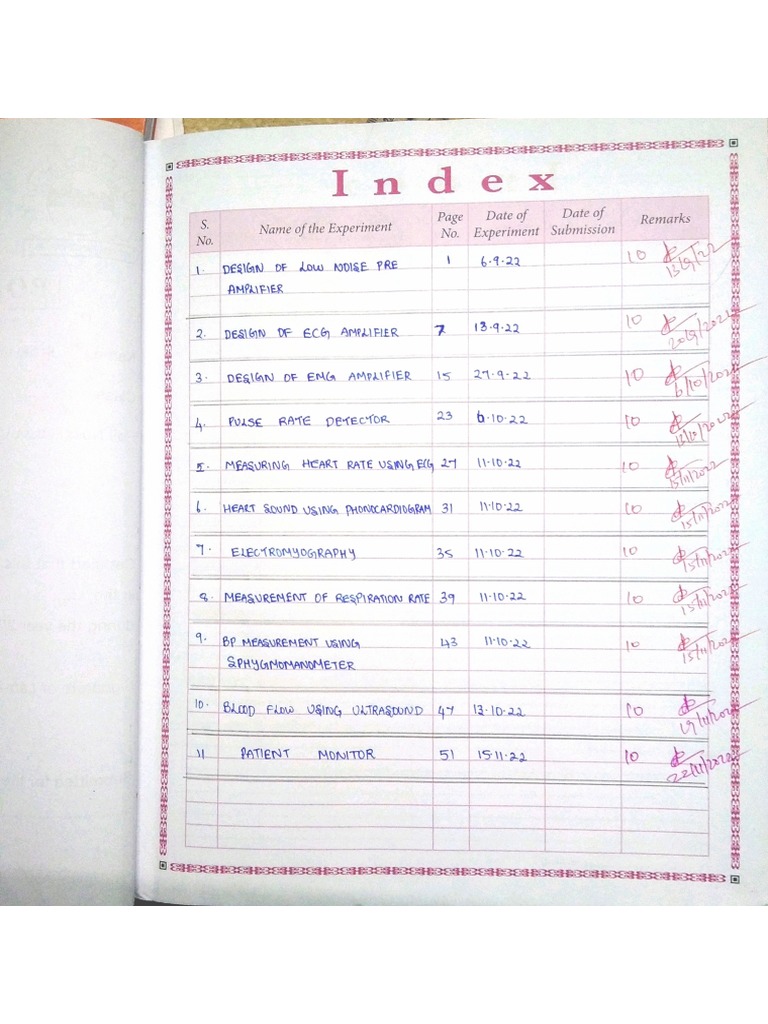 Index
S. No. Name of the Experiment Page No. Date of Experiment Date of Submission Remarks
1. DESIGN OF LOW NOISE PRE 1 6.9.22 10 13/9/22
AMPLIFIER
2. DESIGN OF ECG AMPLIFIER 7 13.9.22 10 20/9/2022
3. DESIGN OF EMG AMPLIFIER 15 27.9.22 10 6/10/2022
4. PULSE RATE DETECTOR 23 6.10.22 10
5. MEASURING HEART RATE USING ECG 27 11.10.22 10 15/11/2022
6. HEART SOUND USING PHONOCARDIOGRAM 31 11.10.22 10 15/11/2022
7. ELECTROMYOGRAPHY 35 11.10.22 10 15/11/2022
8. MEASUREMENT OF RESPIRATION RATE 39 11.10.22 10 15/11/2022
9. BP MEASUREMENT USING 43 11.10.22 10 15/11/2022
SPHYGMOMANOMETER
10. BLOOD FLOW USING ULTRASOUND 47 13.10.22 10
11 PATIENT MONITOR 51 15.11.22 10 22/11/2022